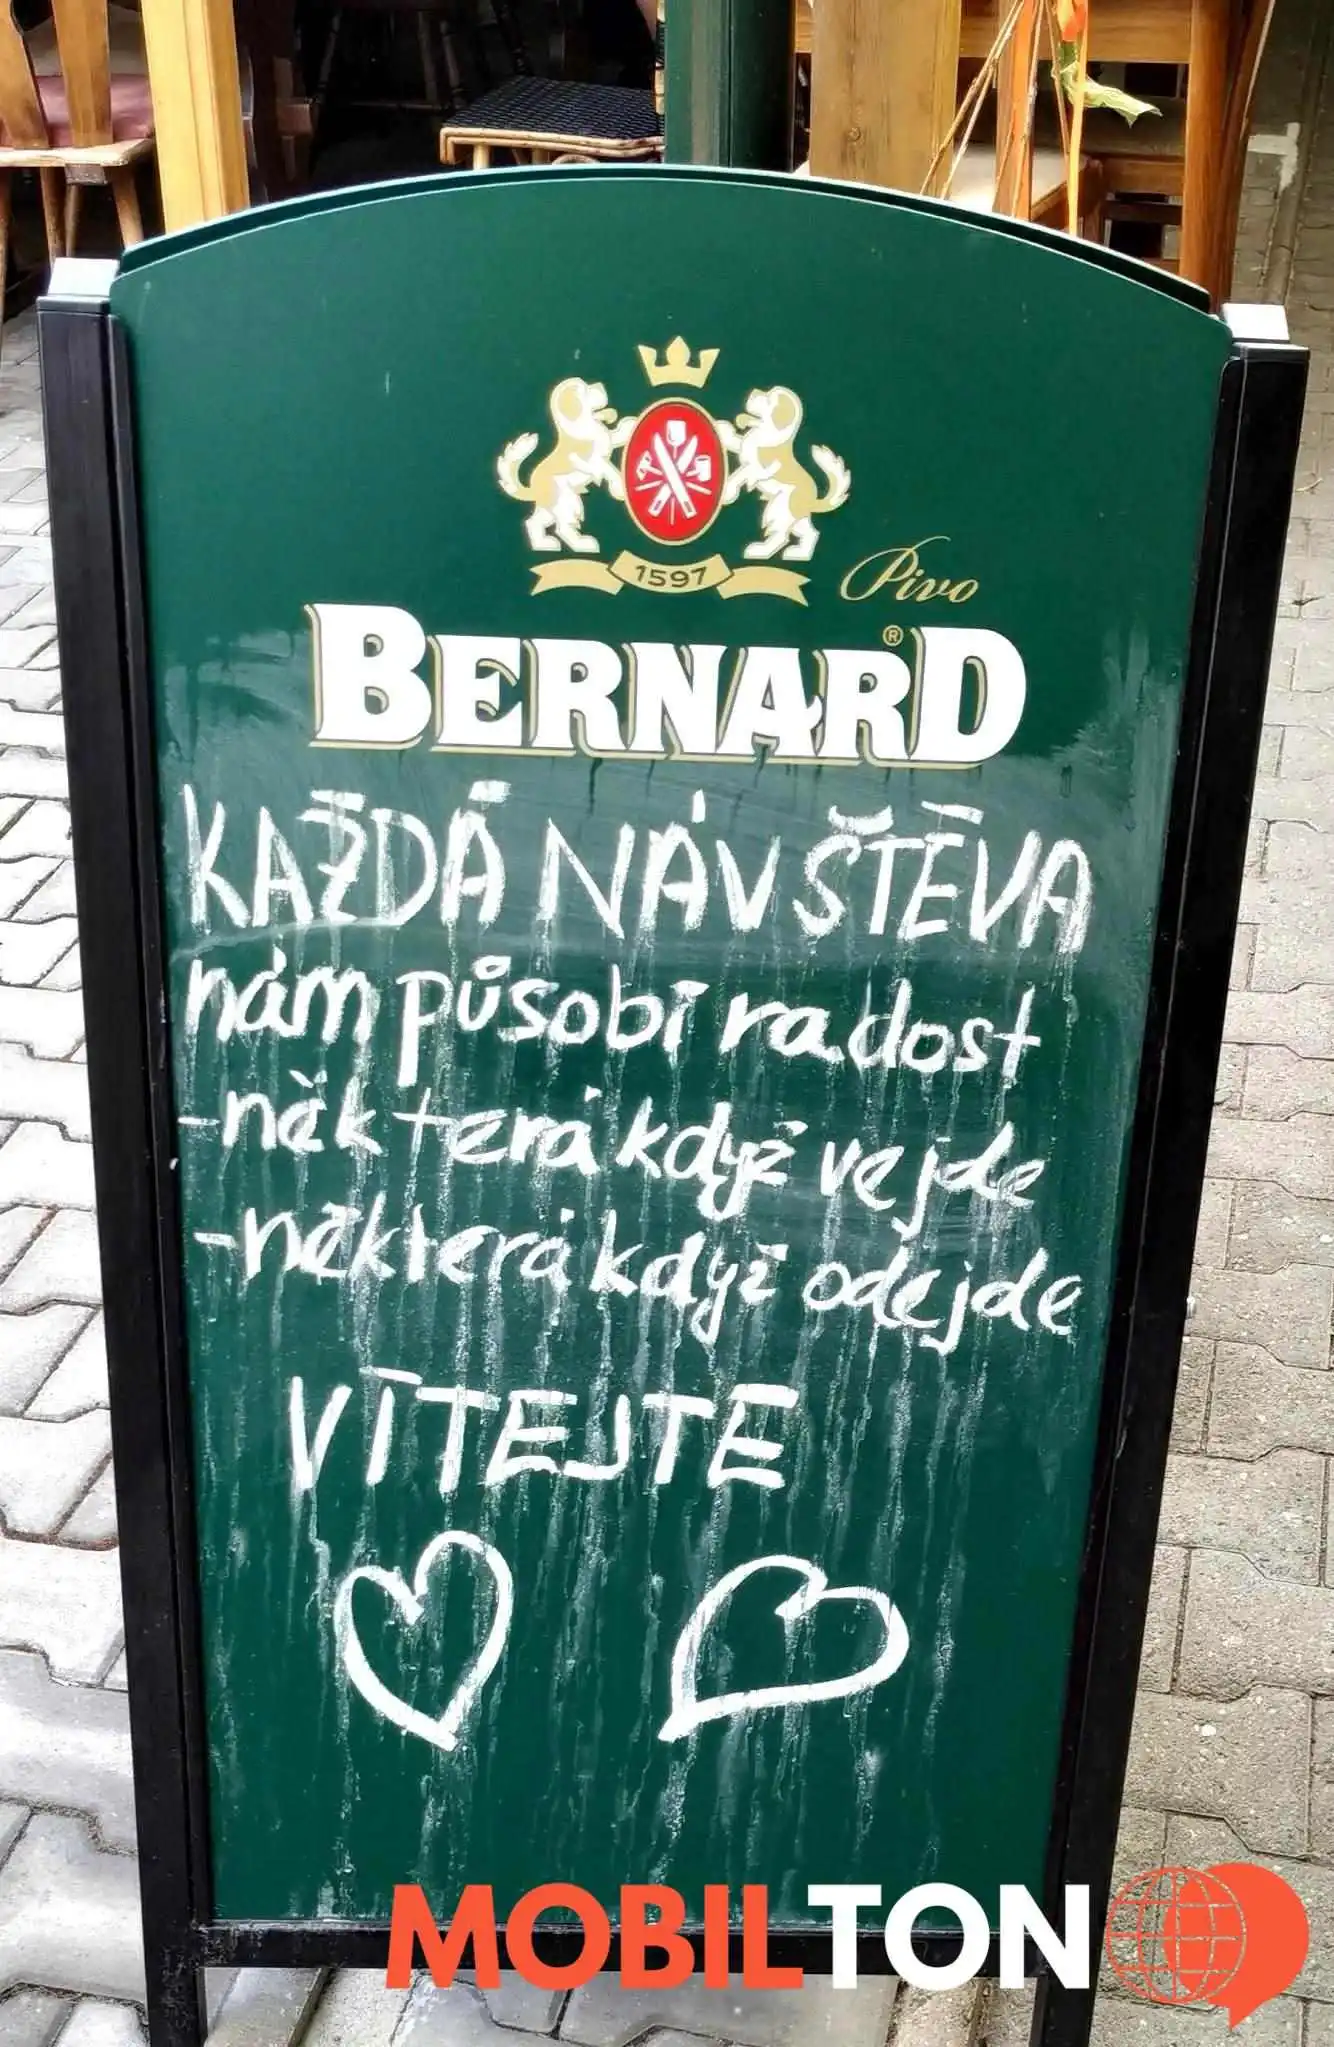 1597
Pivo
BERNARD®
KAŽDÁ NÁVŠTĚVA
nám působí radost
-některá když vejde
-některá když odejde
VÍTEJTE
MOBILTON